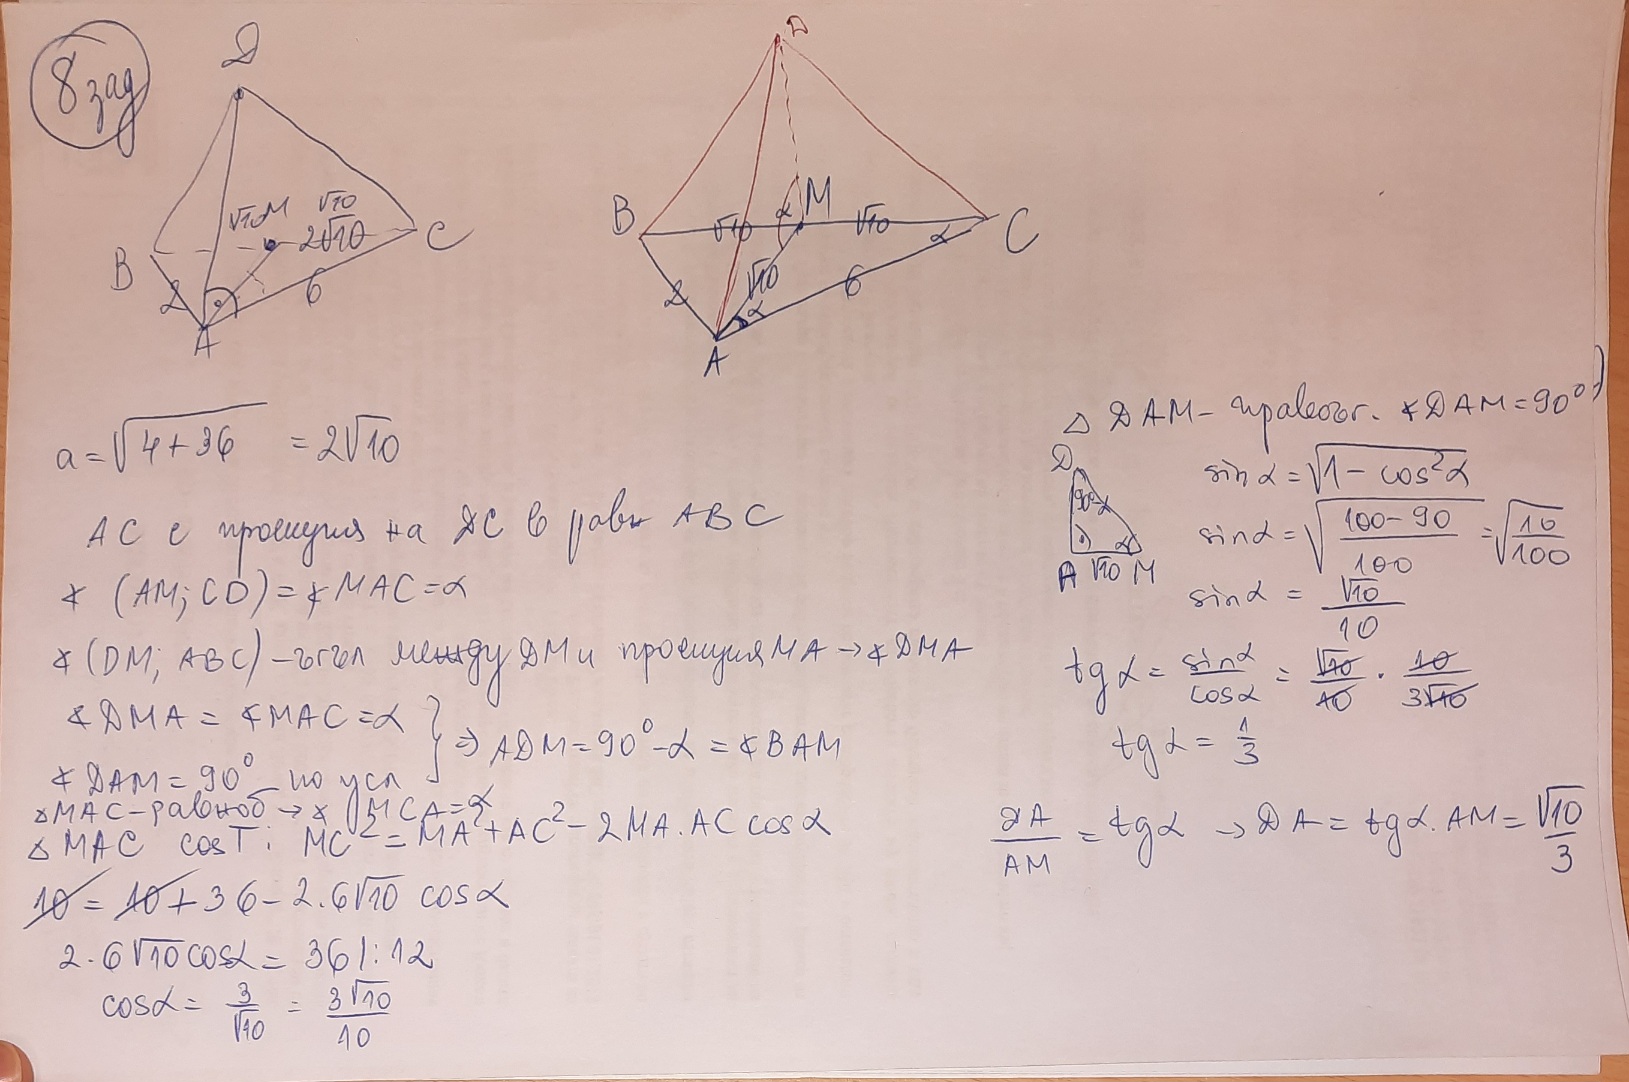 8 зад
D
B
C
A
M
√10
√10
2√10
2
6
D
B
M
C
A
√10
√10
√10
2
6
α
α
α
a = √(4+36) = 2√10
AC е проекция на DC в равн ABC
∢ (AM; CD) = ∢ MAC = α
∢ (DM; ABC) – ъгъл между DM и проекция MA → ∢ DMA
∢ DMA = ∢ MAC = α
∢ DAM = 90° – по усл
} ⇒ ADM = 90° – α = ∢ BAM
△ MAC – равноб → ∢ MCA = α
△ MAC cosT: MC² = MA² + AC² – 2MA.AC cosα
10 = 10 + 36 – 2.6√10 cosα
2.6√10 cosα = 36 |:12
cosα = 3/√10 = 3√10/10
△ DAM – правоъг. ∢ DAM = 90°
D
90°-α
α
A √10 M
sinα = √(1 – cos²α)
sinα = √((100-90)/100) = √(10/100)
sinα = √10/10
tgα = sinα/cosα = √10/10 . 10/3√10
tgα = 1/3
DA/AM = tgα → DA = tgα.AM = √10/3